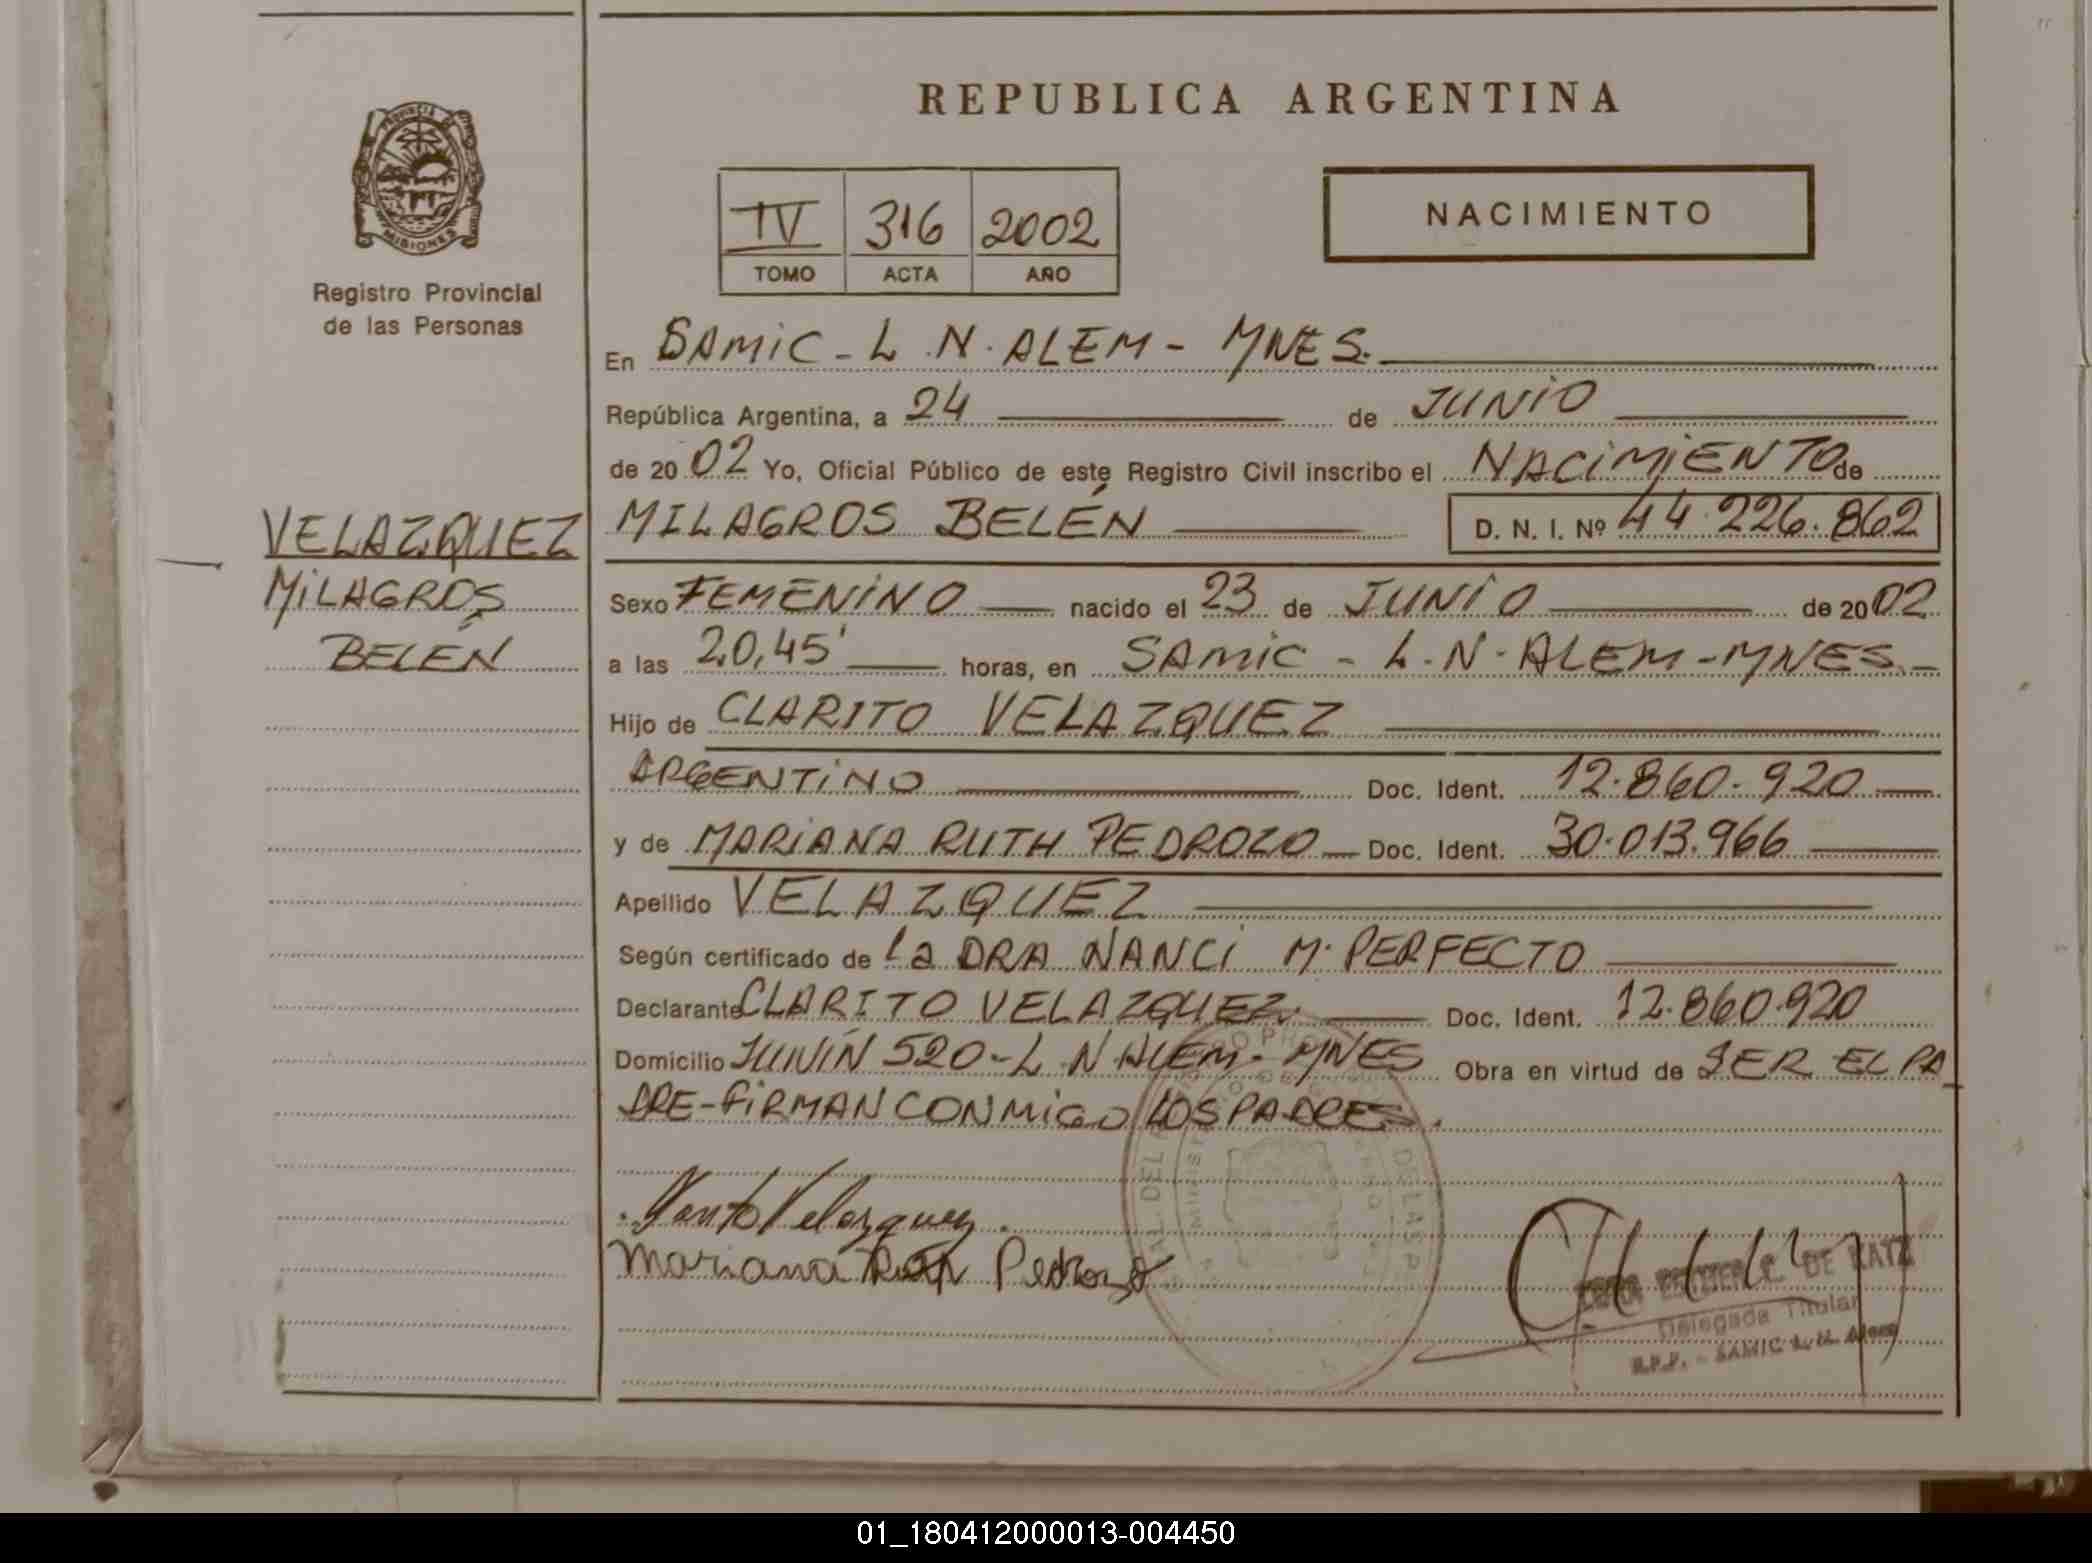 REPUBLICA ARGENTINA
PROVINCIA DE
MISIONES
Registro Provincial
de las Personas
IV 316 2002
TOMO ACTA AÑO
NACIMIENTO
En SAMIC - L.N. ALEM - MNES.
República Argentina, a 24 de JUNIO
de 2002 Yo, Oficial Público de este Registro Civil inscribo el NACIMIENTO de
VELAZQUEZ
MILAGROS
BELÉN
MILAGROS BELÉN D. N. I. Nº 44.226.862
Sexo FEMENINO nacido el 23 de JUNIO de 2002
a las 20,45' horas, en SAMIC - L.N. ALEM - MNES.
Hijo de CLARITO VELAZQUEZ
ARGENTINO Doc. Ident. 12.860.920
y de MARIANA RUTH PEDROZO Doc. Ident. 30.013.966
Apellido VELAZQUEZ
Según certificado de La DRA NANCI M. PERFECTO
Declarante CLARITO VELAZQUEZ Doc. Ident. 12.860.920
Domicilio JUNÍN 520 - L N ALEM - MNES Obra en virtud de SER EL PA
DRE - FIRMAN CONMIGO LOS PADRES.
Velazquez
Mariana Ruth Pedrozo
DE KATZ
Delegada Titular
R.P.P. - SAMIC L. N. Alem
01_180412000013-004450